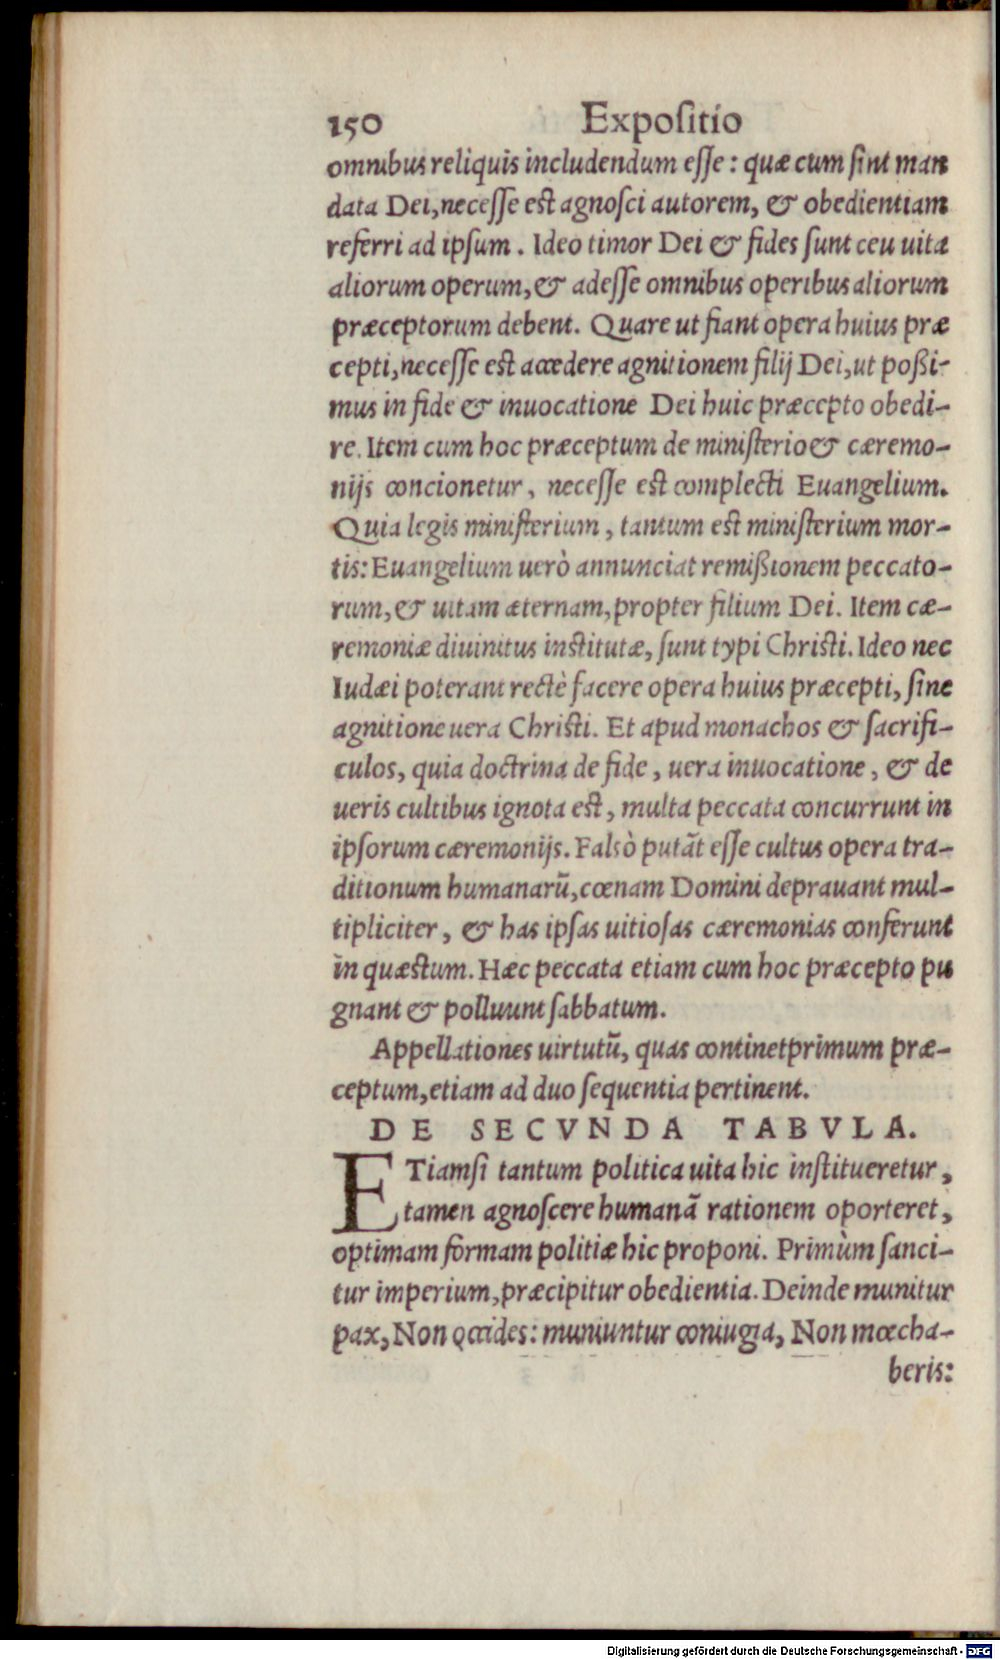 150 Expoſitio
omnibus reliquis includendum eſſe: quæ cum ſint man
data Dei, neceſſe est agnoſci autorem, & obedientiam
referri ad ipſum. Ideo timor Dei & fides ſunt ceu uita
aliorum operum, & adeſſe omnibus operibus aliorum
præceptorum debent. Quare ut fiant opera huius præ
cepti, neceſſe est accedere agnitionem filij Dei, ut poßi-
mus in fide & inuocatione Dei huic præcepto obedi-
re. Item cum hoc præceptum de miniſterio & cæremo-
nijs concionetur, neceſſe est complecti Euangelium.
Quia legis miniſterium, tantum est miniſterium mor-
tis: Euangelium uerò annunciat remißionem peccato-
rum, & uitam æternam, propter filium Dei. Item cæ-
remoniæ diuinitus institutæ, ſunt typi Christi. Ideo nec
Iudæi poterant rectè facere opera huius præcepti, ſine
agnitione uera Christi. Et apud monachos & ſacrifi-
culos, quia doctrina de fide, uera inuocatione, & de
ueris cultibus ignota est, multa peccata concurrunt in
ipſorum cæremonijs. Falsò putãt eſſe cultus opera tra-
ditionum humanarũ, cœnam Domini deprauant mul-
tipliciter, & has ipſas uitioſas cæremonias conferunt
in quæstum. Hæc peccata etiam cum hoc præcepto pu
gnant & polluunt ſabbatum.
Appellationes uirtutũ, quas continet primum præ-
ceptum, etiam ad duo ſequentia pertinent.
DE SECVNDA TABVLA.
ETiamſi tantum politica uita hic inſtitueretur,
tamen agnoſcere humanã rationem oporteret,
optimam formam politiæ hic proponi. Primùm ſanci-
tur imperium, præcipitur obedientia. Deinde munitur
pax, Non occides: muniuntur coniugia, Non mœcha-
beris:
Digitalisierung gefördert durch die Deutsche Forschungsgemeinschaft - DFG